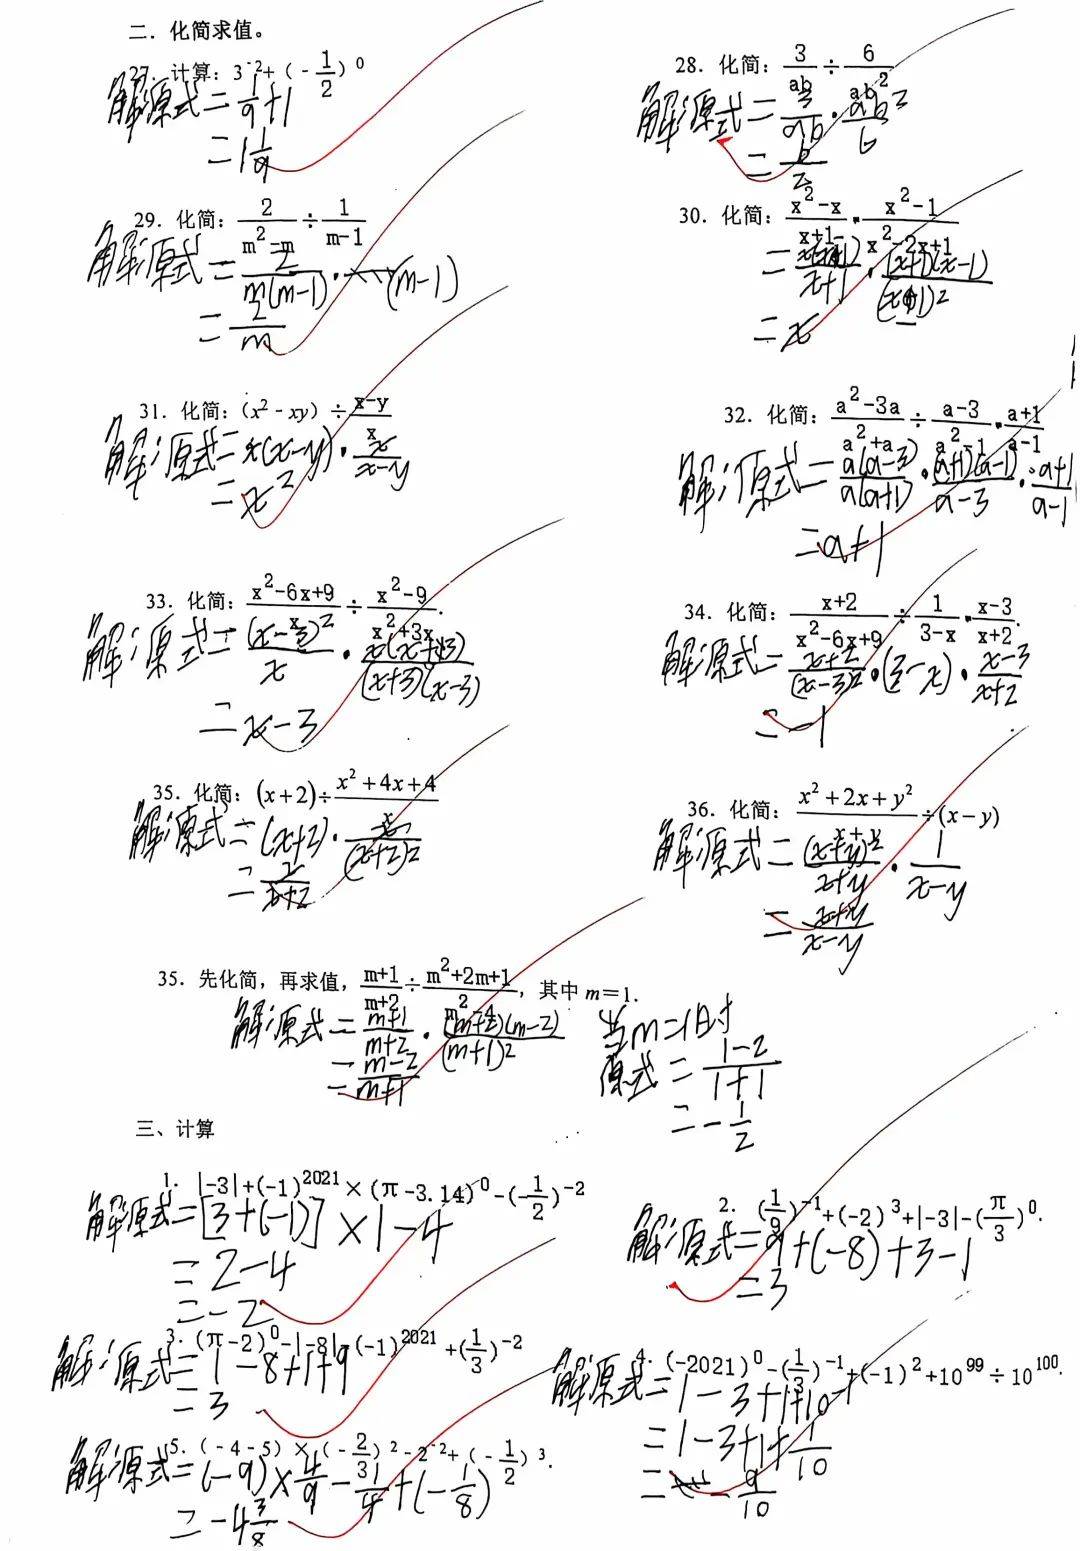 二．化简求值。
27．计算：3⁻²+（-1/2）⁰
解：原式=1/9+1
=1 1/9
28．化简：3/ab÷6/ab²
解：原式=3/ab·ab²/6
=b/2
29．化简：2/(m²-m)÷1/(m-1)
解：原式=2/m(m-1)·(m-1)
=2/m
30．化简：(x²-x)/(x+1)·(x²-1)/(x²-2x+1)
=x(x-1)/(x+1)·(x+1)(x-1)/(x-1)²
=x
31．化简：（x²-xy）÷(x-y)/x
解：原式=x(x-y)·x/(x-y)
=x²
32．化简：(a²-3a)/(a²+a)÷(a-3)/(a²-1)·(a+1)/(a-1)
解：原式=a(a-3)/a(a+1)·(a+1)(a-1)/(a-3)·(a+1)/(a-1)
=a+1
33．化简：(x²-6x+9)/x÷(x²-9)/(x²+3x).
解：原式=(x-3)²/x·x(x+3)/(x+3)(x-3)
=x-3
34．化简：(x+2)/(x²-6x+9)÷1/(3-x)·(x-3)/(x+2).
解：原式=(x+2)/(x-3)²·(3-x)·(x-3)/(x+2)
=-1
35．化简：(x+2)÷(x²+4x+4)/x
解：原式=(x+2)·x/(x+2)²
=x/(x+2)
36．化简：(x²+2x+y²)/(x+y)÷(x-y)
解：原式=(x+y)²/(x+y)·1/(x-y)
=(x+y)/(x-y)
35．先化简，再求值，(m+1)/(m+2)÷(m²+2m+1)/(m²-4)，其中m=1.
解：原式=(m+1)/(m+2)·(m+2)(m-2)/(m+1)²
=(m-2)/(m+1)
当m=1时
原式=(1-2)/(1+1)
=-1/2
三、计算
1．|-3|+(-1)²⁰²¹×(π-3.14)⁰-(-1/2)⁻²
解：原式=[3+(-1)]×1-4
=2-4
=-2
2．(1/9)⁻¹+(-2)³+|-3|-(π/3)⁰.
解：原式=9+(-8)+3-1
=3
3．(π-2)⁰-|-8|-(-1)²⁰²¹+(1/3)⁻²
解：原式=1-8+1+9
=3
4．(-2021)⁰-(1/3)⁻¹+(-1)²+10⁹⁹÷10¹⁰⁰.
解：原式=1-3+1+10⁻¹
=1-3+1+1/10
=-9/10
5．(-4-5)×(-2/3)²-2⁻²+(-1/2)³.
解：原式=(-9)×4/9-1/4+(-1/8)
=-4 3/8